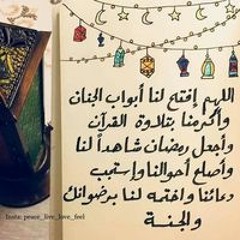 اللهم إفتح لنا أبواب الجنان
وأكرمنا بتلاوة القرآن
وأجعل رمضان شاهداً لنا
وأصلح أحوالنا وإستجب
دعائنا واختمه لنا برضوانك
والجنة
Insta: peace_live_love_feel